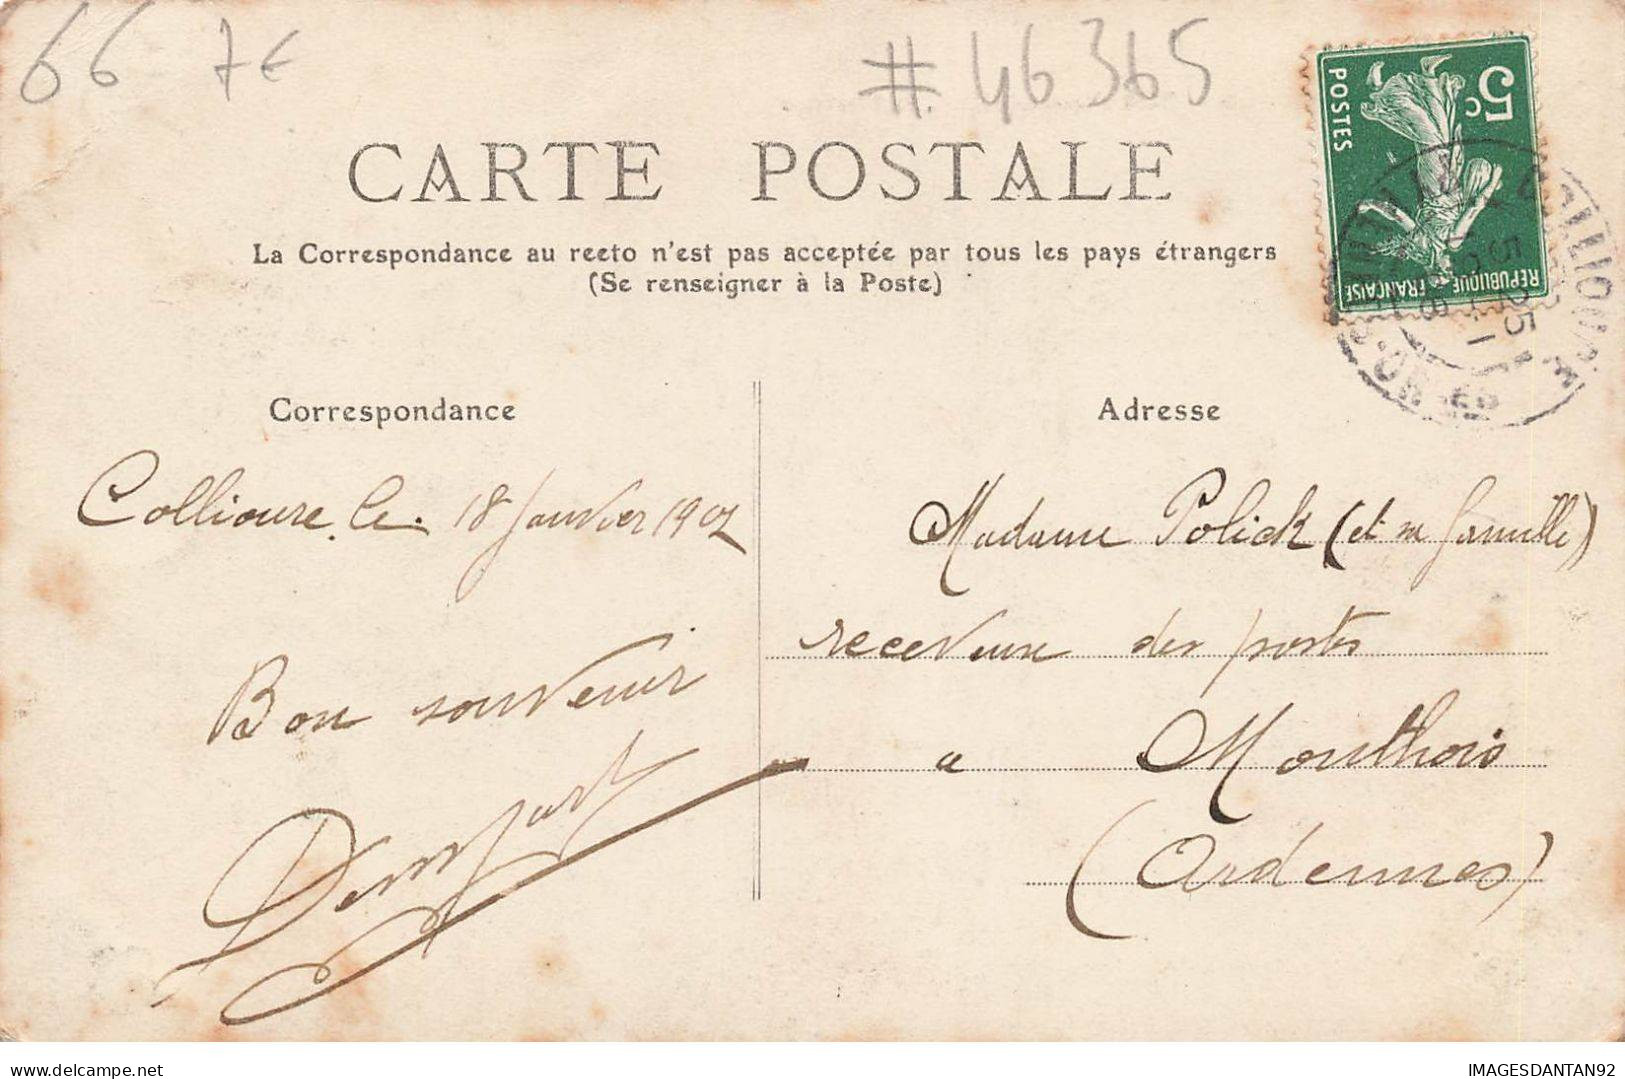 66 7€ # 46365
5c
POSTES
REPUBLIQUE FRANÇAISE
CARTE POSTALE
La Correspondance au recto n'est pas acceptée par tous les pays étrangers
(Se renseigner à la Poste)
Correspondance
Collioure, le. 18 Janvier 1907
Bon souvenir
Adresse
Madame Polick (et sa famille)
receveuse des postes
a Monthois
(Ardennes)
IMAGESDANTAN92